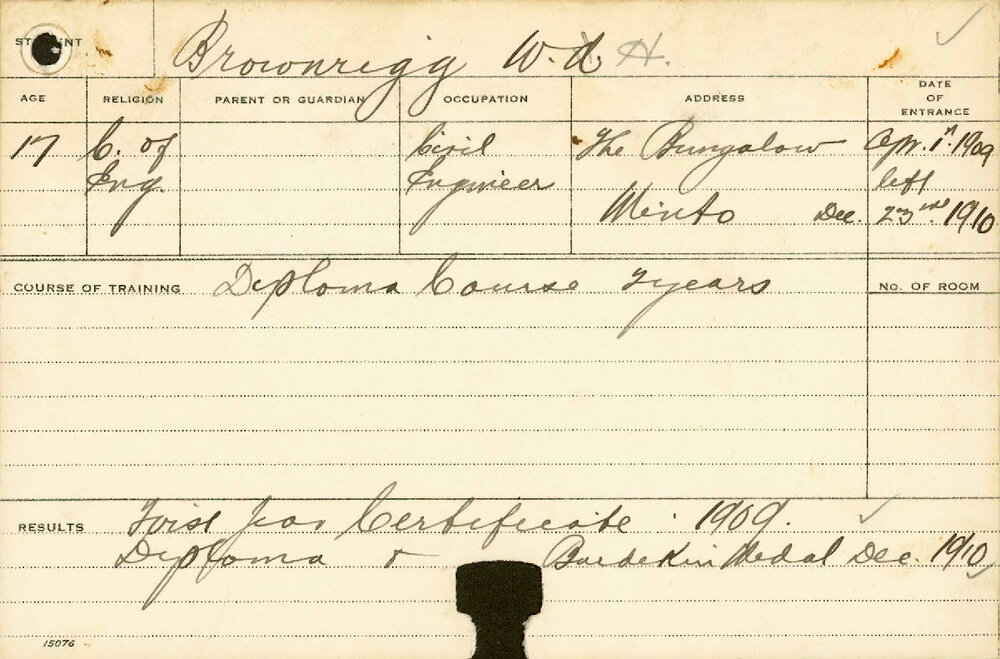 STUDENT Brownrigg W. A. H.
AGE RELIGION PARENT OR GUARDIAN OCCUPATION ADDRESS DATE OF ENTRANCE
17 C. of Civil The Bungalow Apr. 1st. 1909
Eng. Engineer left
Minto Dec. 23rd. 1910
COURSE OF TRAINING Diploma Course 2 years No. OF ROOM
RESULTS First Year Certificate. 1909.
Diploma & Burdekin Medal Dec. 1910
15076